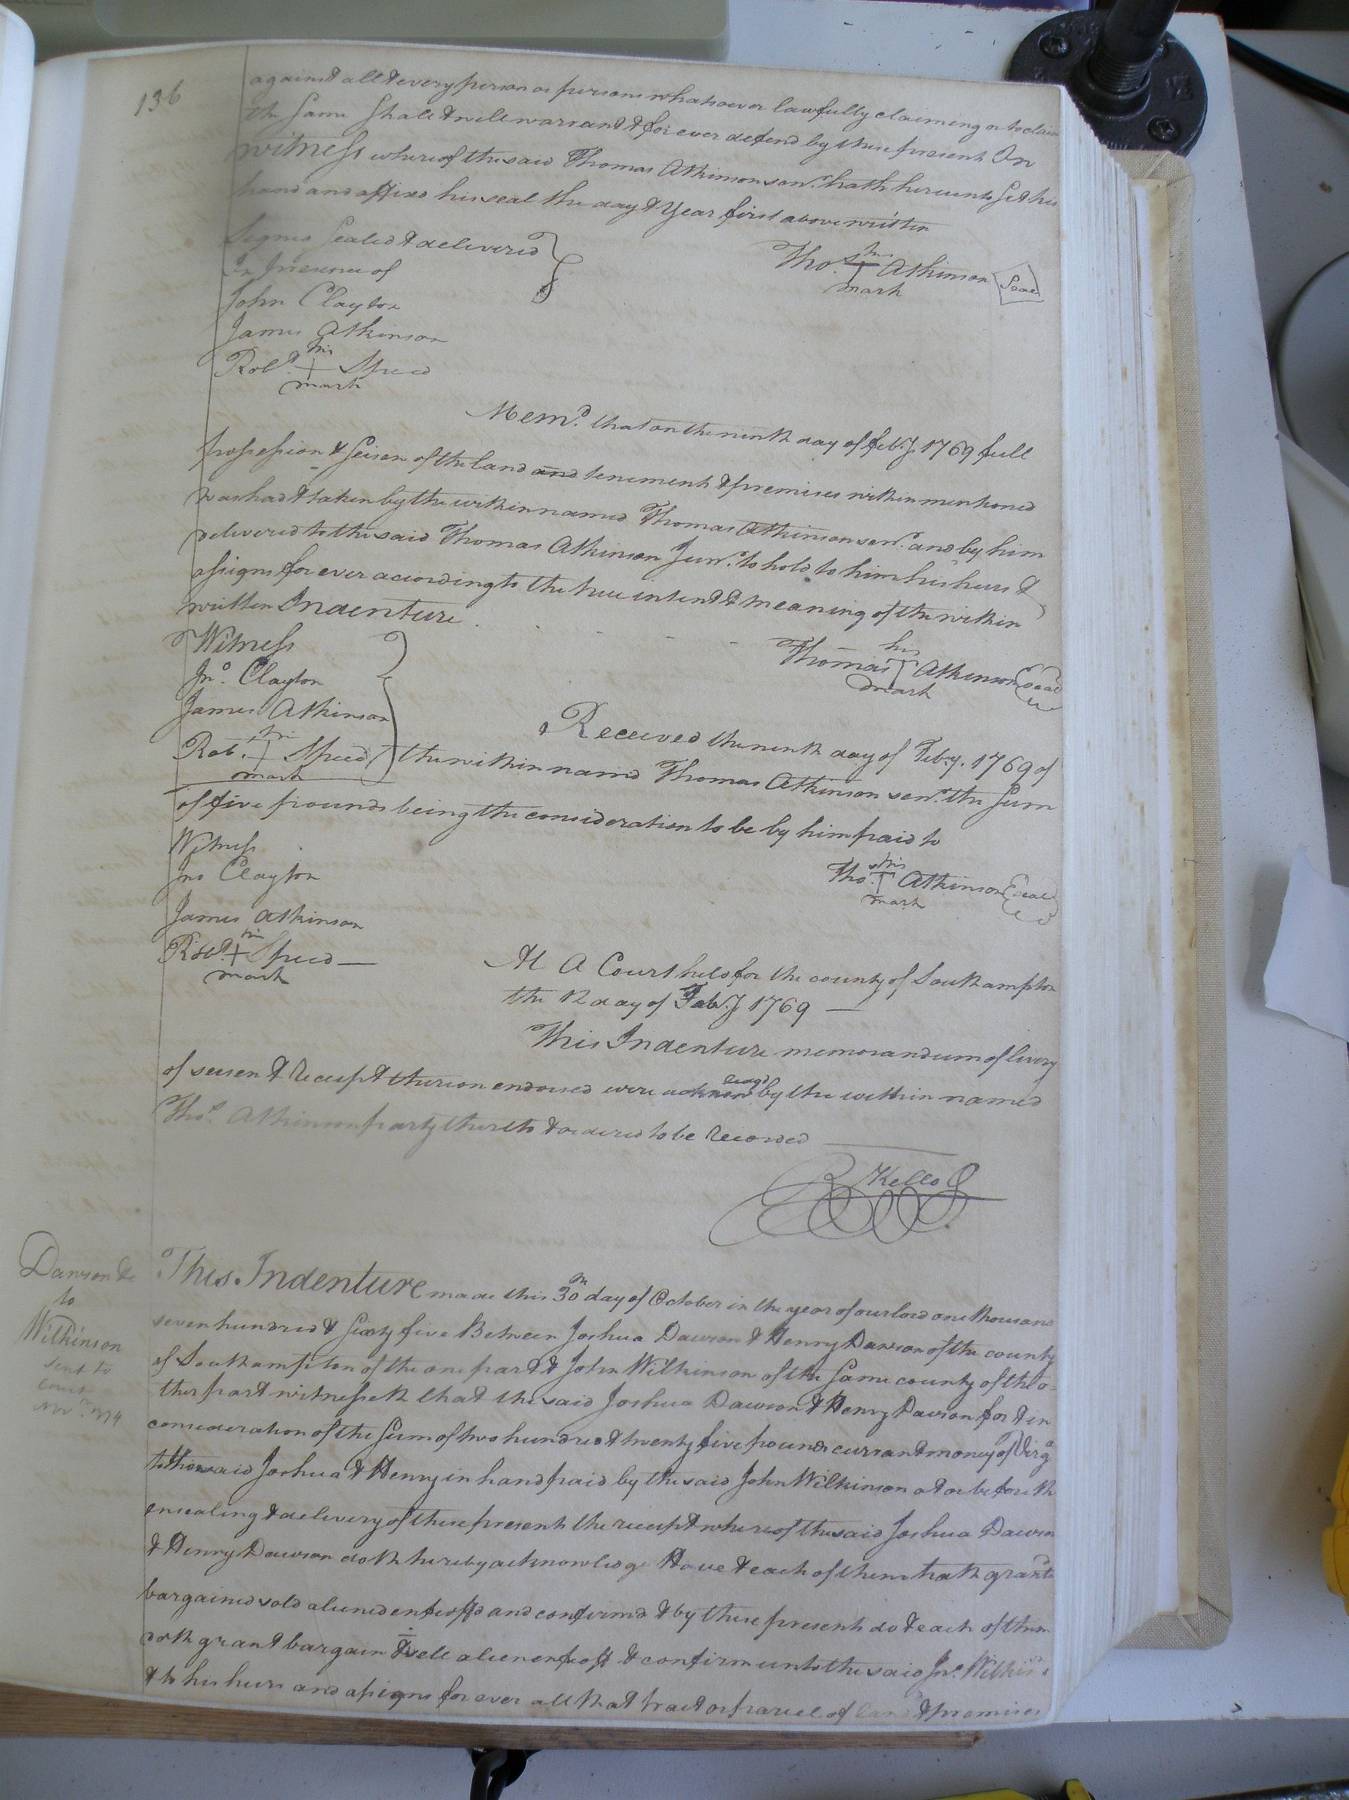 136
against all & every person or persons whatsoever lawfully claiming or to claim
the same shall & will warrant & for ever defend by these presents In
witness whereof the said Thomas Atkinson senr. hath hereunto set his
hand and affixd his seal the day & year first above written
Signed Sealed & delivered
In Presence of
John Clayton
James Atkinson
Robt. his + Speed
mark
Tho. his T Atkinson Seal
mark
Memd. that on the ninth day of feby 1769 full
possession & seisen of the land and tenement & premises within mentioned
was had & taken by the within named Thomas Atkinson senr. and by him
delivered to the said Thomas Atkinson Junr. to hold to him his heirs &
assigns for ever according to the true intent & meaning of the within
written Indenture
Witness
Jno. Clayton
James Atkinson
Rob. his + Speed
mark
Thomas his T Atkinson Seal
mark
Received the ninth day of Feby. 1769 of
the within named Thomas Atkinson senr. the Sum
of five pounds being the consideration to be by him paid to
Witness
Jno Clayton
James Atkinson
Robt. his + Speed
mark
Tho. his T Atkinson Seal
mark
At A Court held for the county of Southampton
the 12 day of Feby 1769
This Indenture memorandum of livery
of seisen & Receipt thereon endorsed were acknowledgd by the within named
Thos. Atkinson party thereto & ordered to be Recorded
R Kello
Dawson &c
to
Wilkinson
sent to
Novr. 1774
This Indenture made this 30th day of October in the year of our lord one thousand
seven hundred & sixty five Between Joshua Dawson & Henry Dawson of the county
of Southampton of the one part & John Wilkinson of the same county of the o-
ther part witnesseth that the said Joshua Dawson & Henry Dawson for & in
consideration of the sum of two hundred & twenty five pounds currant money of Virga
to the said Joshua & Henry in hand paid by the said John Wilkinson at or before th
ensealing & delivery of these presents the receipt whereof the said Joshua Dawson
& Henry Dawson doth hereby acknowledge Have & each of them hath granted
bargained sold aliened enfeoffd and confirmd & by these presents do & each of them
doth grant bargain & sell alien enfeoff & confirm unto the said Jno. Wilkin
& to his heirs and assigns for ever all that tract or parcel of land & premises